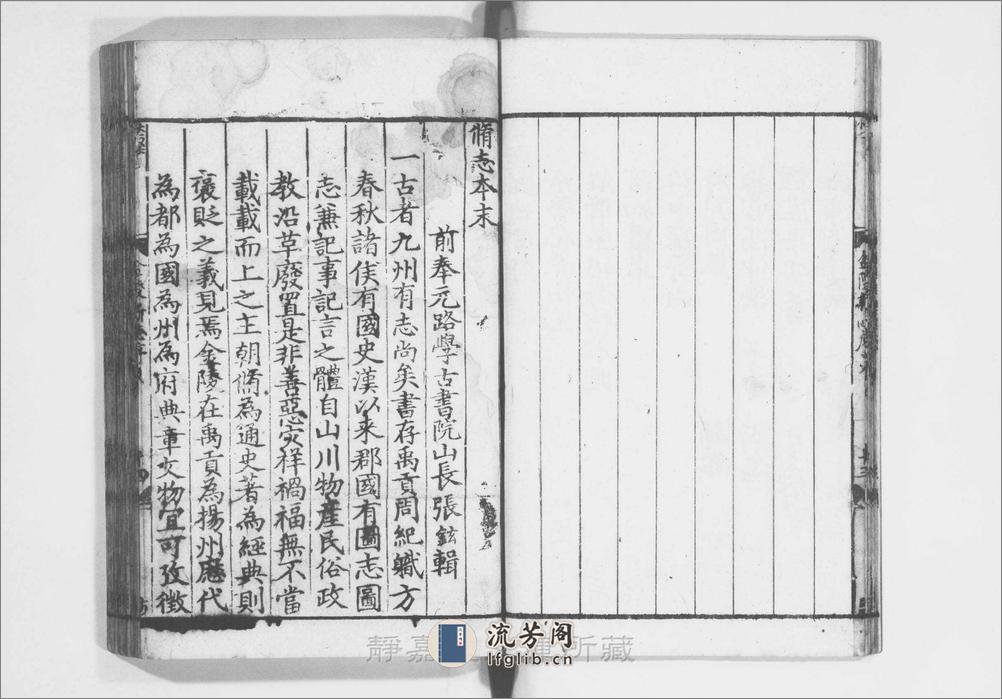 脩志本末
前奉元路學古書院山長張鉉輯
一古者九州有志尚矣書存禹貢周紀職方
春秋諸侯有國史漢以来郡國有圖志圖
志兼記事記言之體自山川物產民俗政
教沿革廢置是非善惡灾祥禍福無不當
載載而上之王朝脩為通史著為經典則
襃貶之義見焉金陵在禹貢為揚州歷代
為都為國為州為府典章文物宜可攷徵
靜嘉
所藏
流芳阁
lfglib.cn